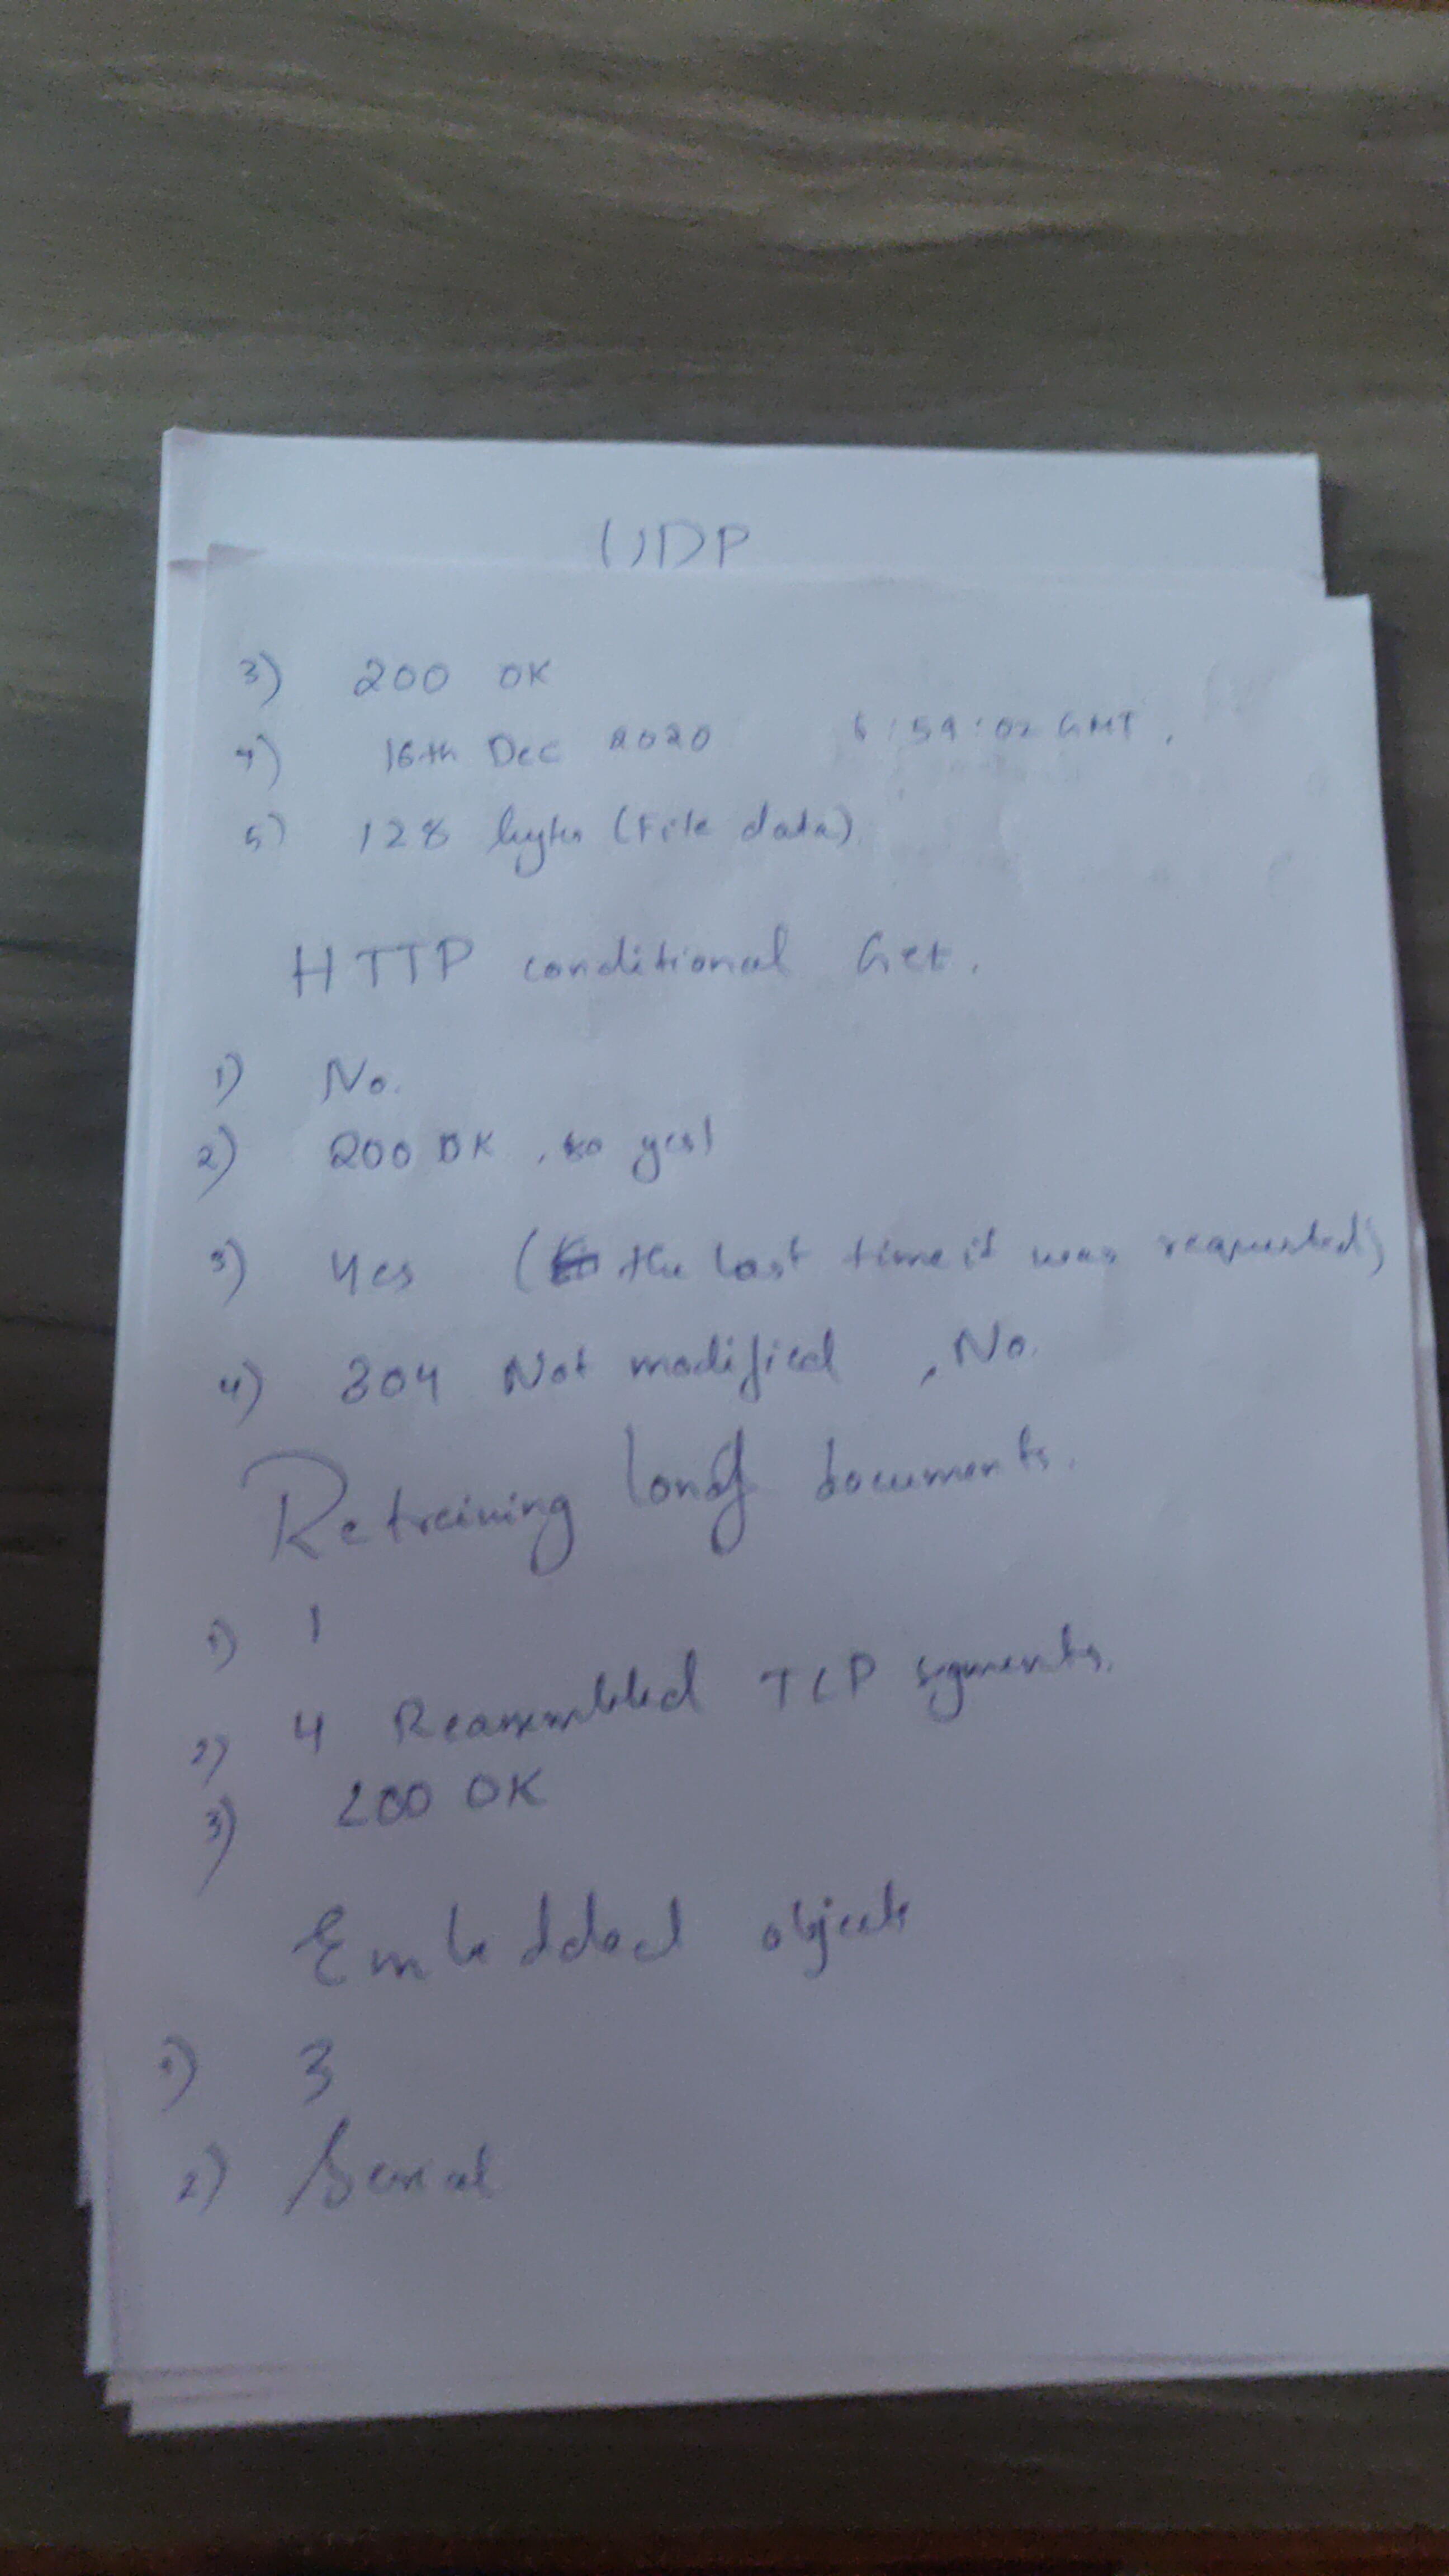 UDP
3) 200 OK
4) 16th Dec 2020 6:59:02 GMT.
5) 128 bytes (File data).
HTTP conditional Get.
1) No.
2) 200 OK, so yes!
3) Yes (the last time it was requested)
4) 304 Not modified, No.
Retreining long documents.
1) 1
2) 4 Reassembled TCP segments.
3) 200 OK
Embedded objects
1) 3
2) Serial